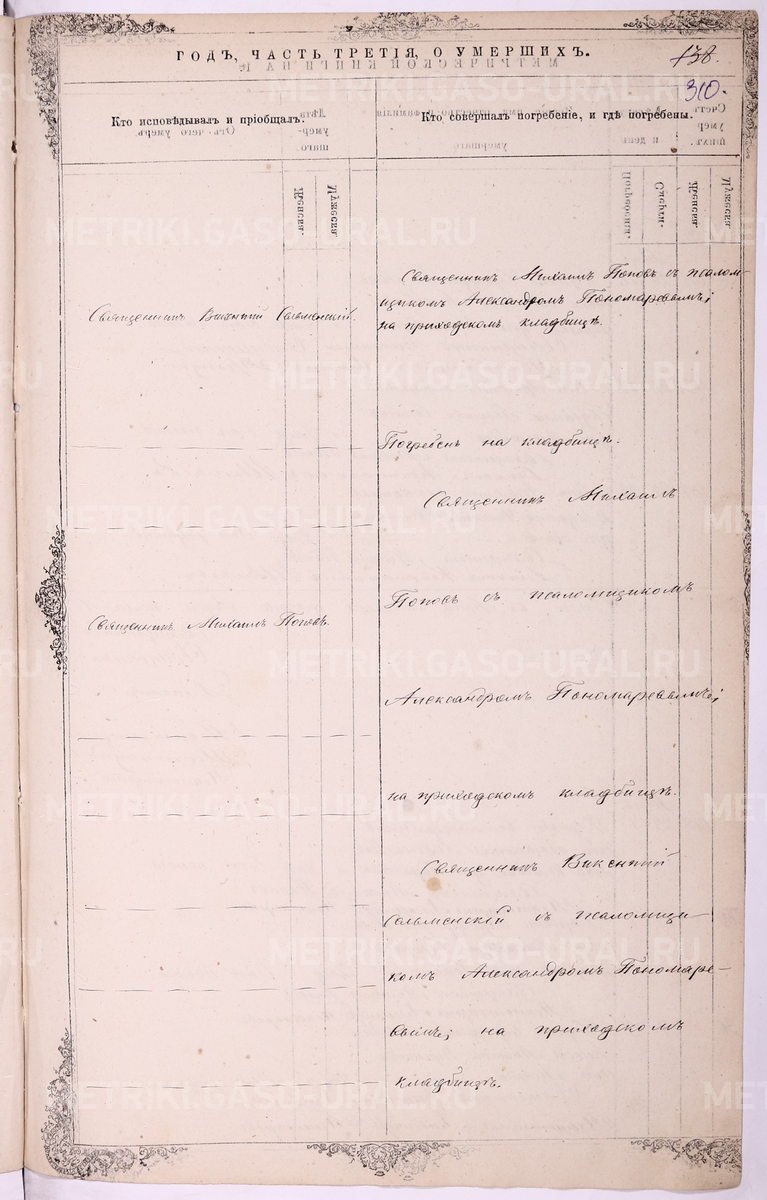 ГОДЪ, ЧАСТЬ ТРЕТІЯ, О УМЕРШИХЪ.
138.
310.
Кто исповѣдывалъ и пріобщалъ.
Кто совершалъ погребеніе, и гдѣ погребены.
Священникъ Викентій Сельменскій.
Священникъ Михаилъ Поповъ съ псалом-
щикомъ Александромъ Пономаревымъ;
на приходскомъ кладбищѣ.
Погребенъ на кладбищѣ.
Священникъ Михаилъ
Поповъ съ псаломщикомъ
Священникъ Михаилъ Поповъ.
Александромъ Пономаревымъ;
на приходскомъ кладбищѣ.
Священникъ Викентій
Сельменскій съ псаломщи-
комъ Александромъ Пономаре-
вымъ; на приходскомъ
кладбищѣ.
METRIKI.GASO-URAL.RU